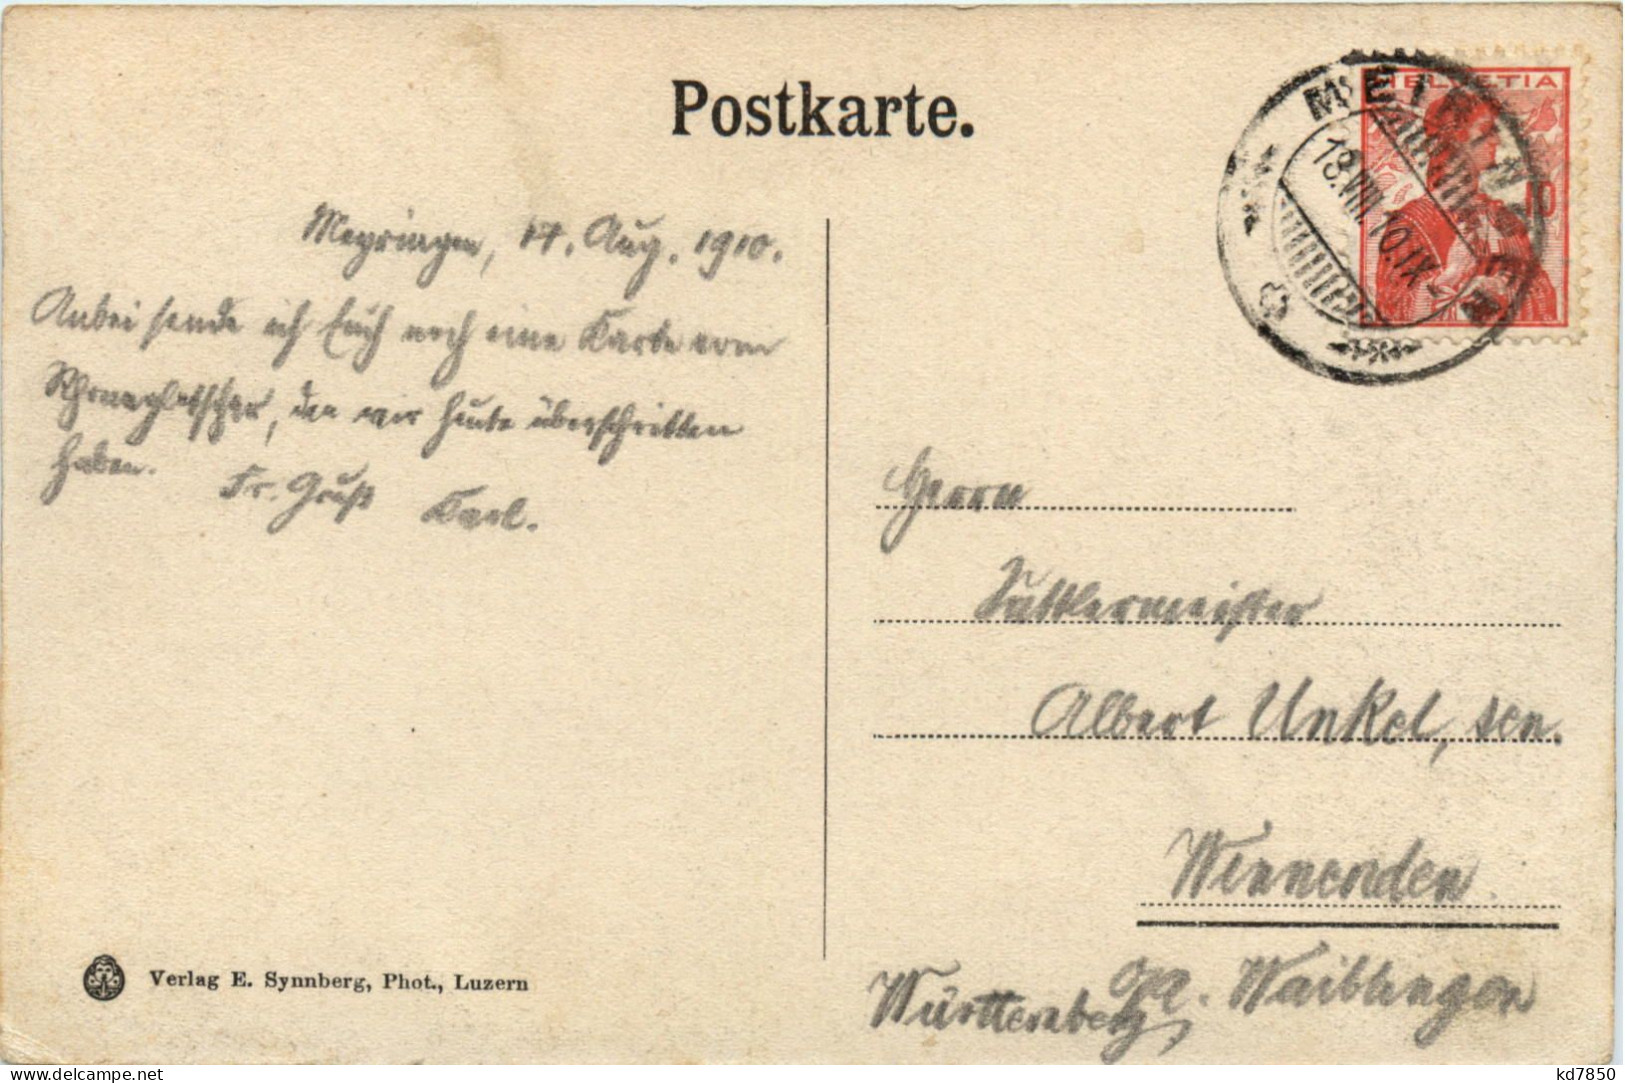 Postkarte.
HELVETIA
10
MEIRINGEN
18.VIII.10.IX
Meyringen, 17. Aug. 1910.
Anbei sende ich Euch noch eine Karte vom
Rhonegletscher, den wir heute überschritten
haben. Fr. Gruß Karl.
Herrn
Sattlermeister
Albert Unkel, sen.
Winnenden
OA. Waiblingen
Württemberg
Verlag E. Synnberg, Phot., Luzern
kd7850